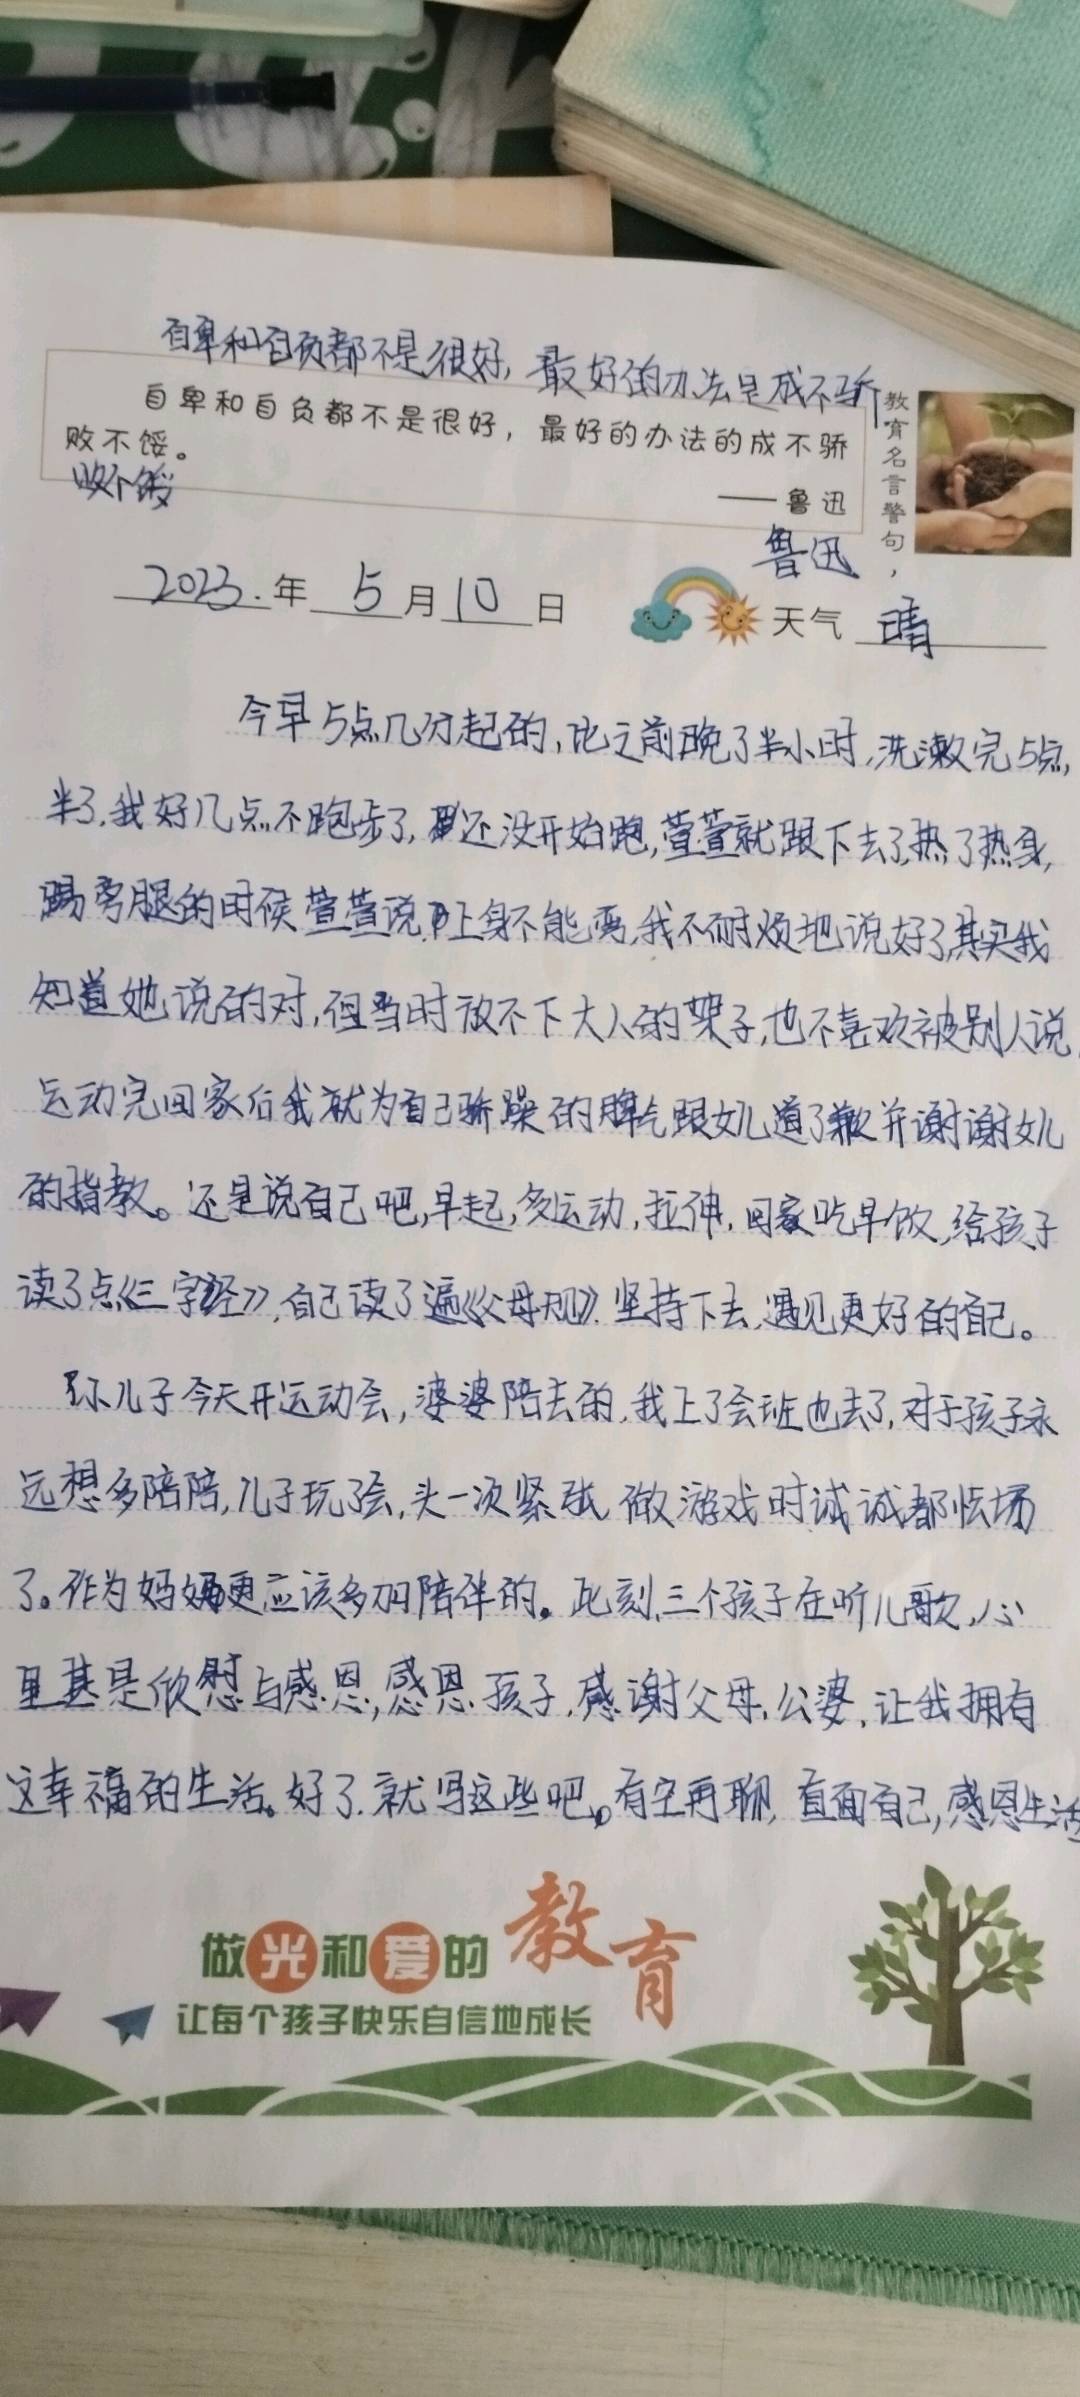 自卑和自负都不是很好，最好的办法是成不骄
自卑和自负都不是很好，最好的办法的成不骄
败不馁。
败不馁
——鲁迅
鲁迅
教育名言警句，
2023.年5月10日
天气 晴
今早5点几分起的,比之前晚了半小时,洗漱完5点,
半了,我好几点不跑步了,还没开始跑,萱萱就跟下去了,热了热身,
踢弯腿的时候萱萱说,上身不能弯,我不耐烦地说好了,其实我
知道她说的对,但当时放不下大人的架子,也不喜欢被别人说,
运动完回家后我就为自己骄躁的脾气跟女儿道了歉并谢谢女儿
的指教。还是说自己吧,早起,多运动,拉伸,回家吃早饭,给孩子
读了点《三字经》,自己读了遍《父母规》.坚持下去,遇见更好的自己。
儿子今天开运动会,婆婆陪去的,我上了会班也去了,对于孩子永
远想多陪陪,儿子玩了会,头一次紧张,做游戏时诚诚都怯场
了。作为妈妈更应该多加陪伴的。此刻,三个孩子在听儿歌,心
里甚是欣慰与感恩,感恩孩子,感谢父母,公婆,让我拥有
这幸福的生活。好了,就写这些吧,有空再聊,直面自己,感恩生活
做光和爱的教育
让每个孩子快乐自信地成长